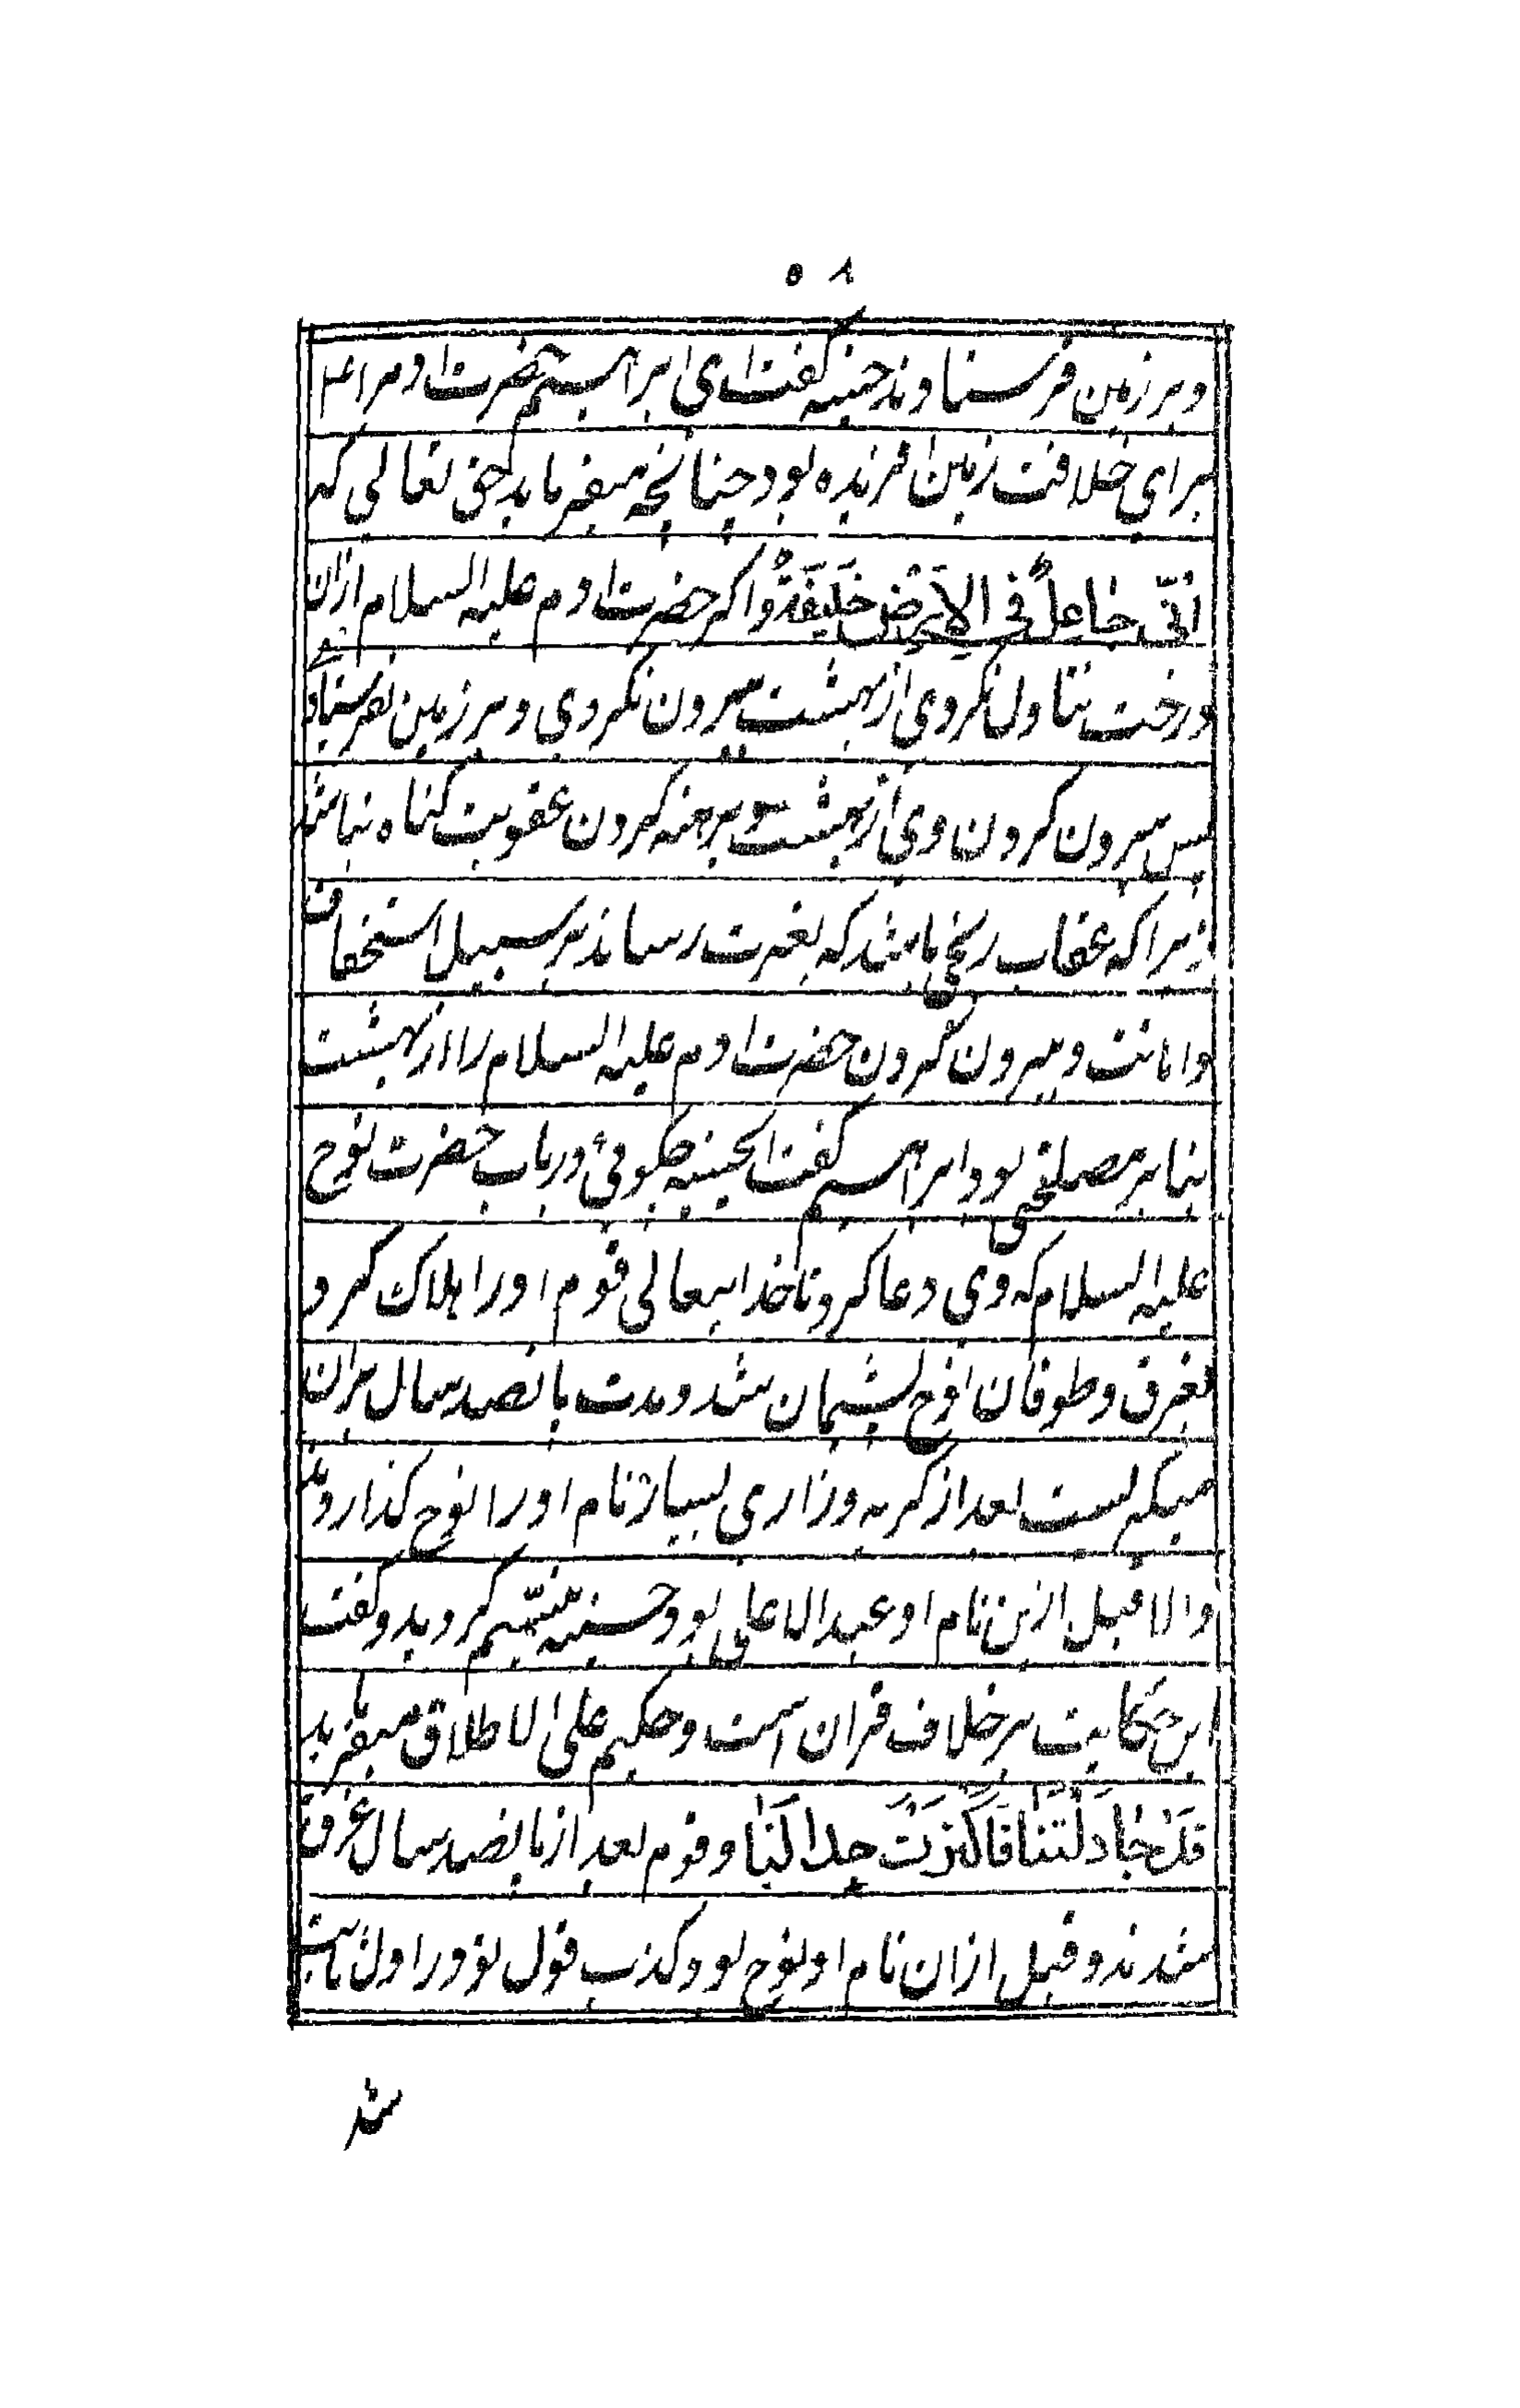 ۵۸
و بر زمین فرستادند حسنیه گفت ای ابراهیم حضرت ادم را ع
برای خلافت زمین افریده بود چنانچه میفرماید حق تعالی که
اِنّی جاعلٌ فی الارَضِ خَلیفَةً واکر حضرت ادم علیه السلام ازان
درخت تناول نکردی از بهشت بیرون نکردی و بر زمین نفرستادے
پس بیرون کردن وی از بهشت و برهنه کردن عقوبت کناه نباشد
زیرا که عقاب رنجی باشد که بغیرت رساند بر سبیل استخفاف
واهانت و بیرون کردن حضرت ادم علیه السلام را از بهشت
بنابر مصلحتی بود ابراهیم گفت ایحسنیه چکوئی در باب حضرت نوح
علیه السلام که وی دعا کرد تا خدایتعالی قوم او را هلاک کرد
بغرق و طوفان نوح پشیمان شد و مدت پانصد سال بران
میکریست بعد از کریه و زاری بسیار نام او را نوح کذاردند
والا قبل ازین نام او عبدالاعلی بود حسنیه متبسّم کردید و کفت
این حکایت بر خلاف قران است و حکیم علی الاطلاق میفرماید
قَدْ جَادَلْتَنَا فَاَکْثَرْتَ جِدَالَنَا و قوم بعد از پانصد سال غرق
شدند و قبل ازان نام او نوح بود و کذب قول تو در اول ثابت
شد